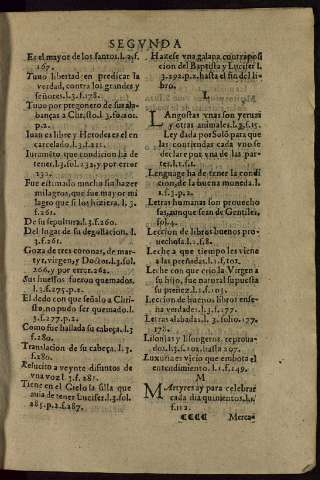 SEGVNDA
Es el mayor de los santos. l.2.f.
167.
Tuuo libertad en predicar la
verdad, contra los grandes y
señores. l.3.f.178.
Tuuo por pregonero de sus ala-
banças a Christo. l.3.fo.101.
p.2.
Iuan es libre y Herodes es el en
carcelado. l.3.f.211.
Iuramēto que condicion ha de
tener. l.3.fol.232. y por error
132.
Fue estimado mucho sin hazer
milagros, que fue mayor mi
lagro que si los hiziera. l.3.
f.261.
De su sepultura. l.3.f.260.
Del lugar de su degollacion. l.
3.f.261.
Goza de tres coronas, de mar-
tyr, virgen, y Doctor. l.3.fol.
266. y por error.262.
Sus huessos fueron quemados.
l.3.f.275.p.2.
El dedo con que señalo a Chri-
sto, no pudo ser quemado. l.
3.f.277.p.2.
Como fue hallada su cabeça. l.3
f.280.
Translacion de su cabeça. l.3.
f.280.
Resucito a veynte difuntos de
vna voz l.3.f.281.
Tiene en el Cielo la silla que
auia de tener Lucifer. l.3.fol.
285.p.2.f.287.
Hazese vna galana contraposi
cion del Baptista y Lucifer l.
3.292.p.2. hasta el fin del li-
bro.
L
LAngostas vnas son yeruas
y otras animales. l.3.f.15.
Ley dada por Solō para que
las contiendas cada vno se
declare por vna de las par-
tes. l.1.f.1.
Lenguage ha de tener la condi
cion, de la buena moneda. l.
1.f.3.p.2.
Letras humanas son prouecho
sas, aunque sean de Gentiles,
fol.4.
Leccion de libros buenos pro-
uechosa. l.1.f.8.
Leche a que tiempo les viene
a las preñadas. l.1.f.102.
Leche con que crio la Virgen a
su hijo, fue natural supuesta
su preñez. l.1.f.103.
Leccion de buenos libros ense-
ña verdades. l.3.f.177.
Letras alabadas. l.3.folio.177.
178.
Lisonjas y lisongeros, reproua-
dos. l.3.f.202. hasta 207.
Luxuria es vicio que embota el
entendimiento. l.1.f.149.
M
MArtyres ay para celebrar
cada dia quinientos. l.1.
f.112.
CCCC Merca-